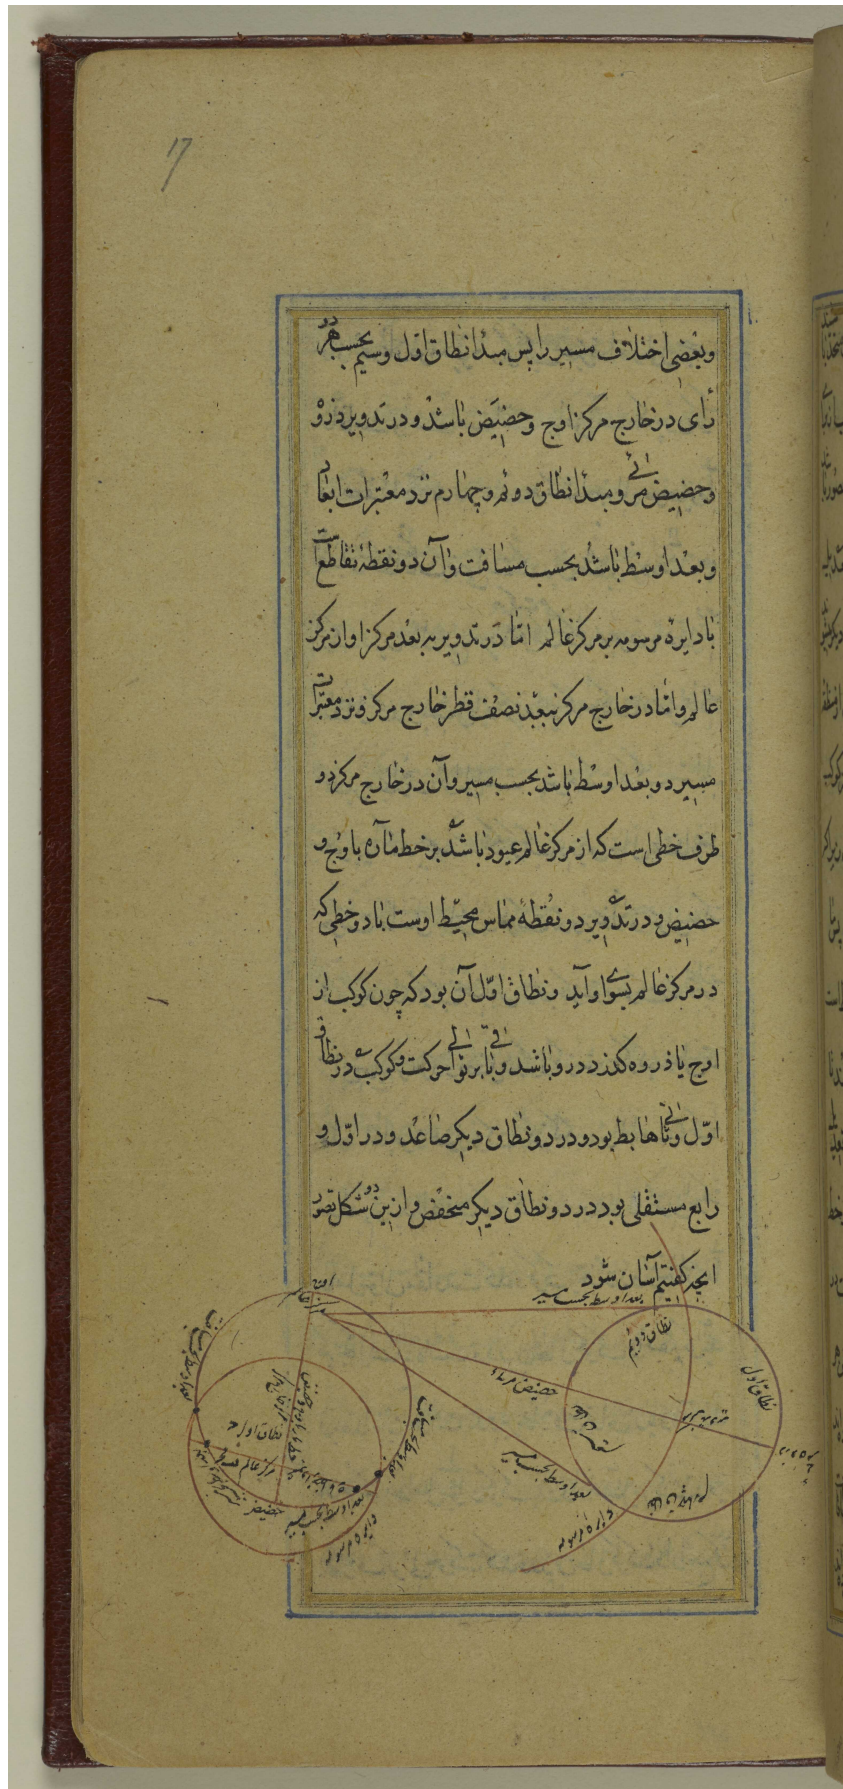 17
وبعضی اختلاف مسیر را پس مبدا نطاق اول وسیم بحسب هر دو
رأی در خارج مرکز اوج وحضیض باشد ودر تدویر ذروه
وحضیض مرئی ومبدا نطاق دوئم وچهارم نزد معتبرات ابعاد
وبعد اوسط باشد بحسب مسافت وآن دو نقطهٔ تقاطع است
با دایرهٔ مرسومه بر مرکز عالم اما در تدویر به بعد مرکز او از مرکز
عالم واما در خارج مرکز ببعد نصف قطر خارج مرکز ونزد معتبرات
مسیر دو بعد اوسط باشد بحسب مسیر وآن در خارج مرکز دو
طرف خطی است که از مرکز عالم عمود باشد بر خط مارّه باوج و
حضیض ودر تدویر دو نقطهٔ مماس محیط اوست با دو خطی که
در مرکز عالم بسوی او آید ونطاق اوّل آن بود که چون کوکب از
اوج یا ذروه کذرد درو باشد وباقی بر توالی حرکت وکوکب در نطاق
اوّل وثانی هابط بود ودر دو نطاق دیکر صاعد ودر اوّل و
رابع مستعلی بود در دو نطاق دیکر منخفض وازین دو شکل تصور
انچه کفتیم آسان شود
بعد اوسط بحسب مسیر
اوج
مرکز عالم
نطاق دوئم
نطاق اول
حضیض مرئی
مرکز تدویر
بعد اوسط بحسب مسیر
دایرهٔ مرسومه
بعد اوسط بحسب مسافت
بعد اوسط بحسب مسافت
نطاق اول
مرکز عالم
حضیض
بعد اوسط بحسب مسیر
دایرهٔ مرسومه